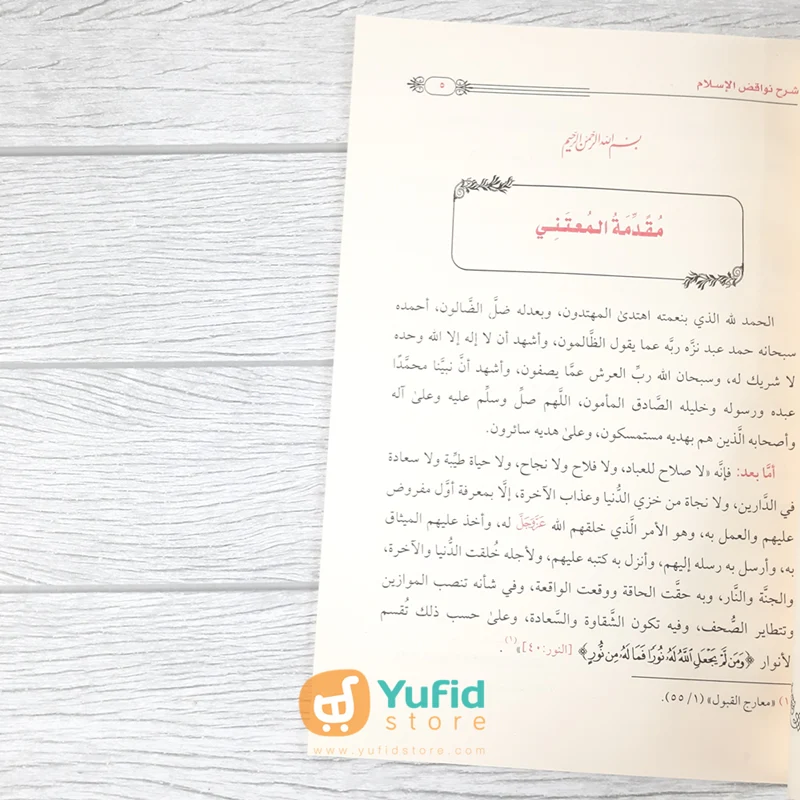 شرح نواقض الإسلام
٥
بسم الله الرحمن الرحيم
مُقَدِّمَةُ المُعتَنِي
الحمد لله الذي بنعمته اهتدىٰ المهتدون، وبعدله ضلَّ الضَّالون، أحمده
سبحانه حمد عبد نزَّه ربَّه عما يقول الظَّالمون، وأشهد أن لا إله إلا الله وحده
لا شريك له، وسبحان الله ربِّ العرش عمَّا يصفون، وأشهد أنَّ نبيَّنا محمَّدًا
عبده ورسوله وخليله الصَّادق المأمون، اللَّهم صلِّ وسلِّم عليه وعلىٰ آله
وأصحابه الَّذين هم بهديه مستمسكون، وعلىٰ هديه سائرون.
أمَّا بعد: فإنَّه «لا صلاح للعباد، ولا فلاح ولا نجاح، ولا حياة طيِّبة ولا سعادة
في الدَّارين، ولا نجاة من خزي الدُّنيا وعذاب الآخرة، إلَّا بمعرفة أوَّل مفروض
عليهم والعمل به، وهو الأمر الَّذي خلقهم الله عَزَّوَجَلَّ له، وأخذ عليهم الميثاق
به، وأرسل به رسله إليهم، وأنزل به كتبه عليهم، ولأجله خُلقت الدُّنيا والآخرة،
والجنَّة والنَّار، وبه حقَّت الحاقة ووقعت الواقعة، وفي شأنه تنصب الموازين
وتتطاير الصُّحف، وفيه تكون الشَّقاوة والسَّعادة، وعلىٰ حسب ذلك تُقسم
لأنوار ﴿وَمَن لَّمْ يَجْعَلِ ٱللَّهُ لَهُۥ نُورًا فَمَا لَهُۥ مِن نُّورٍ﴾ [النور:٤٠]»(١).
١) «معارج القبول» (١/ ٥٥).
Yufid
store
www.yufidstore.com